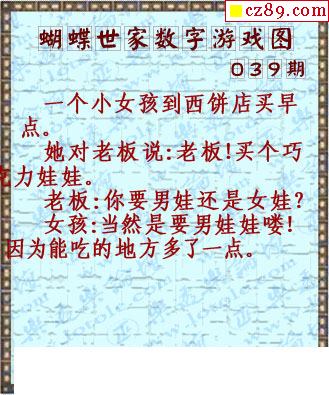 cz89.com
蝴蝶世家数字游戏图
039期
一个小女孩到西饼店买早
点。
她对老板说:老板!买个巧
克力娃娃。
老板:你要男娃还是女娃?
女孩:当然是要男娃娃喽!
因为能吃的地方多了一点。